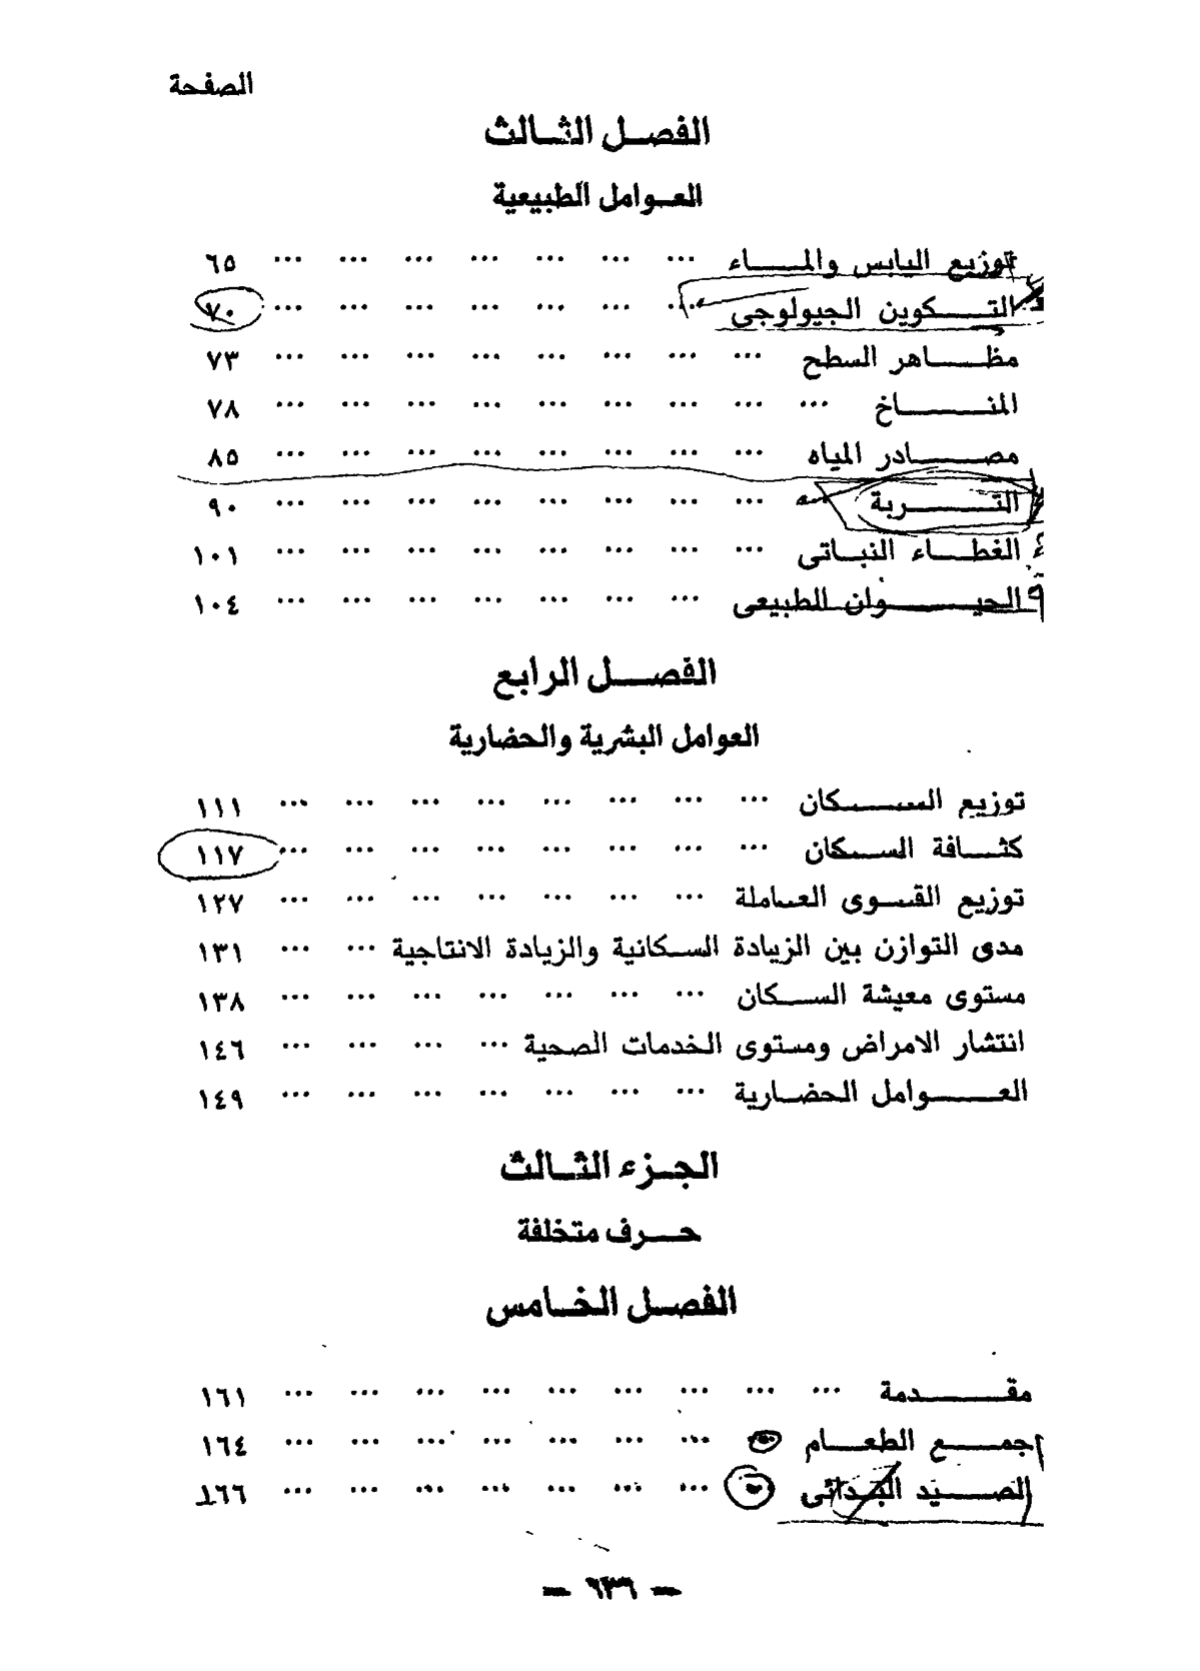 الصفحة
الفصل الثالث
العوامل الطبيعية
توزيع اليابس والماء ... ... ... ... ... ... ... ٦٥
التكوين الجيولوجى ... ... ... ... ... ... ... ٧٠
مظاهر السطح ... ... ... ... ... ... ... ... ٧٣
المناخ ... ... ... ... ... ... ... ... ... ٧٨
مصادر المياه ... ... ... ... ... ... ... ... ٨٥
التربة ... ... ... ... ... ... ... ... ٩٠
الغطاء النباتى ... ... ... ... ... ... ... ... ١٠١
الحيوان الطبيعى ... ... ... ... ... ... ... ١٠٤
الفصل الرابع
العوامل البشرية والحضارية
توزيع السكان ... ... ... ... ... ... ... ... ١١١
كثافة السكان ... ... ... ... ... ... ... ... ١١٧
توزيع القوى العاملة ... ... ... ... ... ... ... ١٢٧
مدى التوازن بين الزيادة السكانية والزيادة الانتاجية ... ... ١٣١
مستوى معيشة السكان ... ... ... ... ... ... ... ١٣٨
انتشار الامراض ومستوى الخدمات الصحية ... ... ... ... ١٤٦
العوامل الحضارية ... ... ... ... ... ... ... ١٤٩
الجزء الثالث
حرف متخلفة
الفصل الخامس
مقدمة ... ... ... ... ... ... ... ... ... ١٦١
جمع الطعام ... ... ... ... ... ... ... ١٦٤
الصيد البدائى ... ... ... ... ... ... ... ١٦٦
— ٦٣٦ —